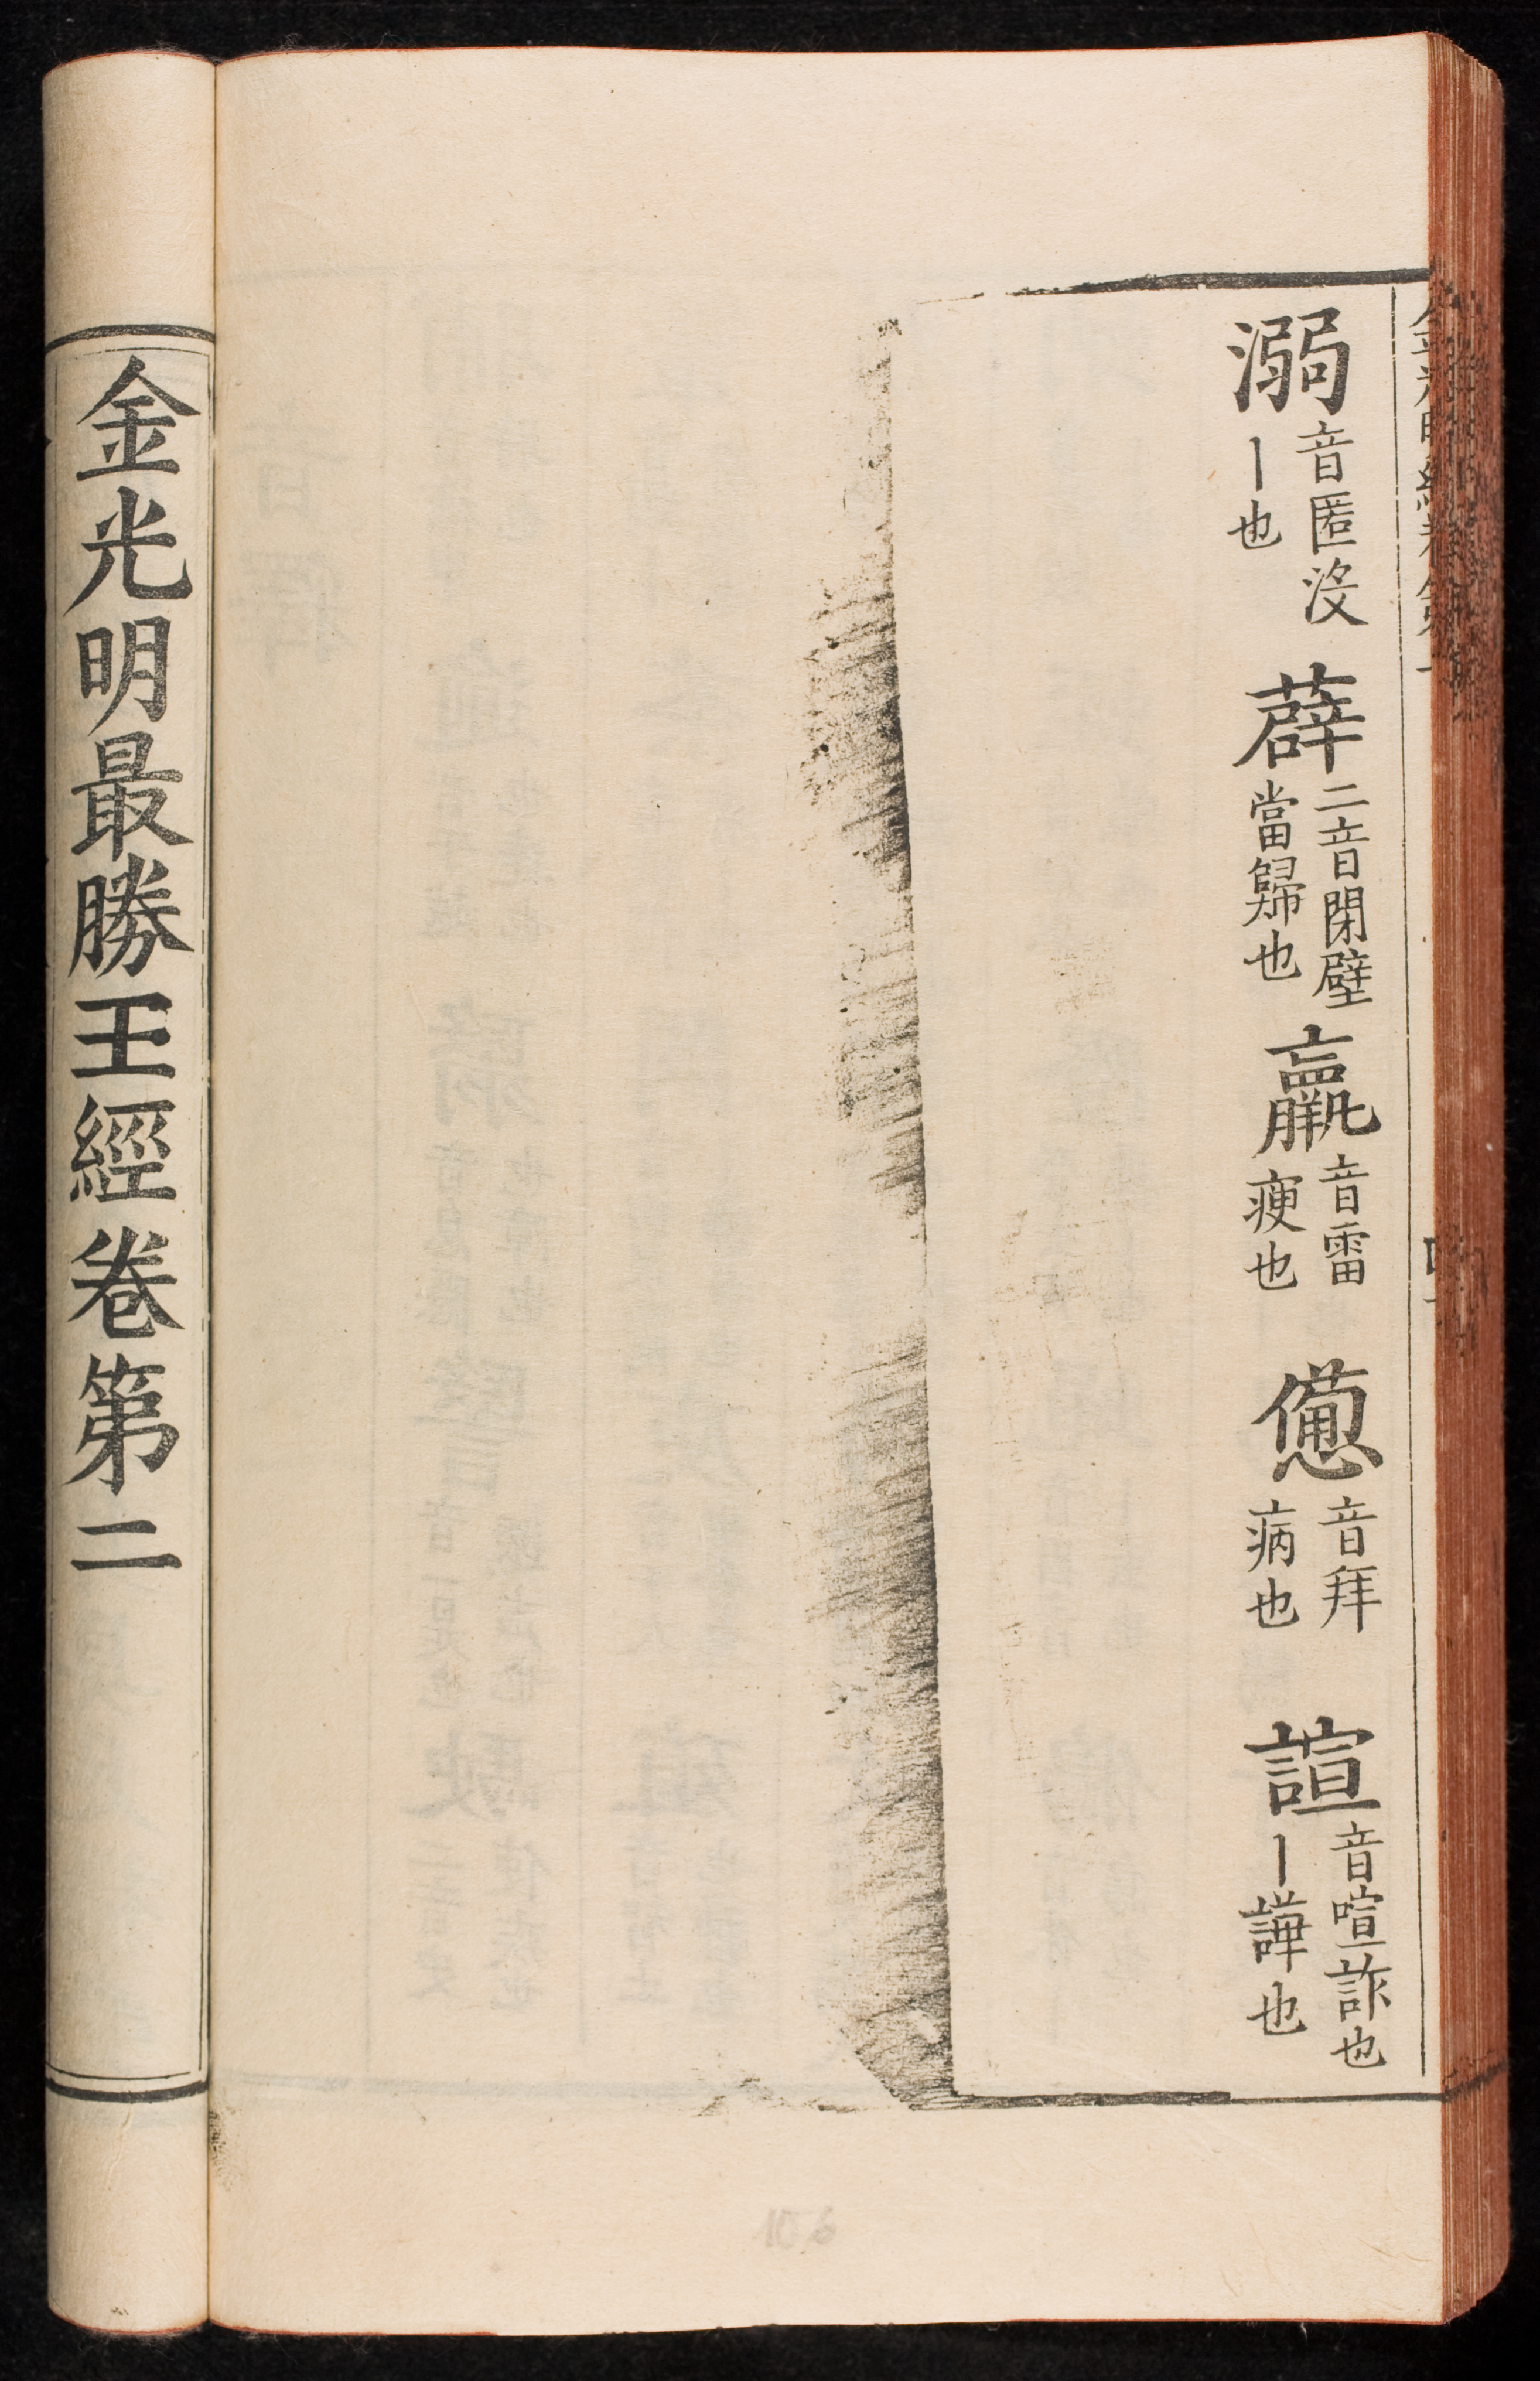 溺音匿沒丨也 薜二音閉壁當歸也 羸音雷瘦也 憊音拜病也 諠音喧詐也丨譁也
金光明最勝王經卷第二